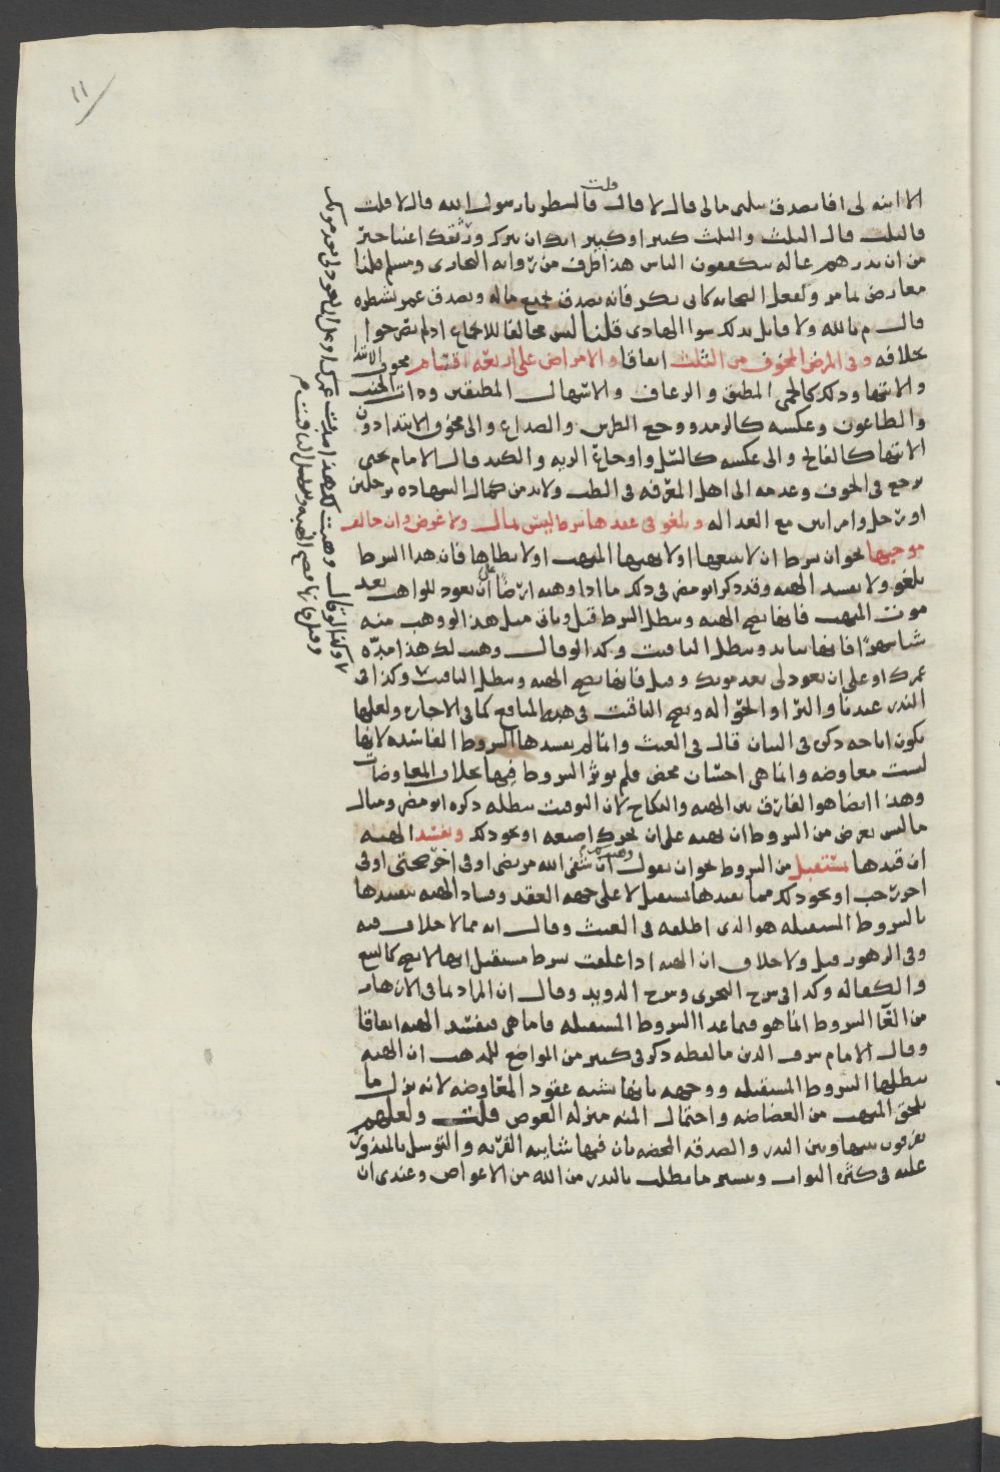 ١١
الا ابنه لى افاتصدق بثلثى مالى قال لا قال قلت فالشطر يا رسول الله قال لا قلت
فالثلث قال الثلث والثلث كثير او كبير انك ان تترك ورثتك اغنيا خير
من ان تذرهم عاله يتكففون الناس هذا طرف من روايه البخارى ومسلم قلنا
معارض بما مر ولفعل الصحابه كابى بكر فانه تصدق بجميع ماله وتصدق عمر بشطره
قال م بالله ولا قايل بذلك سوا الهادى قلنا ليس مخالفا للاجماع اذ لم يصرحوا
بخلافه وفى المرض المخوف من الثلث اتفاقا والامراض على اربعه اقسام مخوف الابتدا
والانتها وذلك كالحمى المطبق والرعاف والاسهال المطبقين وذات الجنب
والطاعون وعكسه كالرمد ووجع الضرس والصداع والى مخوف الابتدا دون
الانتها كالفالج والى عكسه كالسل واوجاع الريه والكبد قال الامام يحيى
يرجع فى الخوف وعدمه الى اهل المعرفه فى الطب ولا بد من كمال الشهاده برجلين
او رجل وامراتين مع العداله ويلغو فى عقدها شرط ليس بمال ولا غرض وان خالف
موجبها نحو ان يشرط ان لا يبيعها او لا يهبها المتهب او لا يطاها فان هذا الشرط
يلغو ولا يفسد الهبه وقد ذكر ابو مضر فى ذلك ما اذا وهبه ارضا على ان تعود للواهب بعد
موت المتهب فانها تصح الهبه ويبطل الشرط قيل وياتى مثل هذا لو وهب منه
شيا شهرا فانها تتابد ويبطل التاقيت وكذا لو قال وهبت لك هذا مده
عمرك او على ان تعود لى بعد موتك وقيل فانها تصح الهبه ويبطل التاقيت وكذا فى
النذر عندنا والبر او الحق اله ويصح التاقت فى هبه المنافع كما فى الاجاره ولعلها
يكون اباحه ذكره فى البيان قال فى الغيث وانما لم يفسدها الشروط الفاسده لانها
ليست معاوضه وانما هى احسان محض فلم يوثر الشروط فيها بخلاف المعاوضات
وهذا ايضا هو الفارق بين الهبه والنكاح لان التوقيت يبطله ذكره ابو مضر ومثال
ما ليس بغرض من الشروط ان يهبه على ان يحرك اصبعه او نحو ذلك وتفسد الهبه
ان قيدها بمستقبل من الشروط نحو ان يقول وهبت ان شفى الله مريضى او فى اخر صحتى او فى
اخر رجب او نحو ذلك مما يقيدها بمستقبل لا على جهه العقد وفساد الهبه بتقييدها
بالشروط المستقبله هو الذى اطلقه فى الغيث وقال انه مما لا خلاف فيه
وفى الزهور قيل ولا خلاف ان الهبه اذا علقت بشرط مستقبل انها لا تصح كالبيع
والكفاله وكذا فى شرح البحرى وشرح الدويد وقال ان المراد بما فى الازهار
من الغا الشروط انما هو فيما عدا الشروط المستقبله فاما هى فيفسد الهبه اتفاقا
وقال الامام شرف الدين ما لفظه ذكر فى كثير من المواضع للمذهب ان الهبه
يبطلها الشروط المستقبله ووجهه بانها تشبه عقود المعاوضه لانه نزل ما
يلحق المتهب من الغضاضه واحتمال المنه منزله العوض قلت ولعلهم
يفرقون بينها وبين النذر والصدقه المحضه بان فيها شايبه القربه والتوسل بالمنذور
عليه فى كثره الثواب وتيسير ما يطلب بالنذر من الله من الاعواض وعندى ان